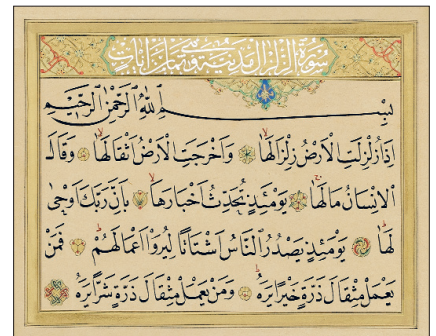 سُورَةُ الزِّلْزَالِ مَدَنِيَّةٌ وَهِيَ ثَمَانُ اٰيَاتٍ
بِسْمِ اللّٰهِ الرَّحْمٰنِ الرَّحِيمِ
اِذَا زُلْزِلَتِ الْاَرْضُ زِلْزَالَهَا وَاَخْرَجَتِ الْاَرْضُ اَثْقَالَهَا وَقَالَ
الْاِنْسَانُ مَالَهَا يَوْمَئِذٍ تُحَدِّثُ اَخْبَارَهَا بِاَنَّ رَبَّكَ اَوْحٰى
لَهَا يَوْمَئِذٍ يَصْدُرُ النَّاسُ اَشْتَاتًا لِيُرَوْا اَعْمَالَهُمْ فَمَنْ
يَعْمَلْ مِثْقَالَ ذَرَّةٍ خَيْرًا يَرَهُ وَمَنْ يَعْمَلْ مِثْقَالَ ذَرَّةٍ شَرًّا يَرَهُ